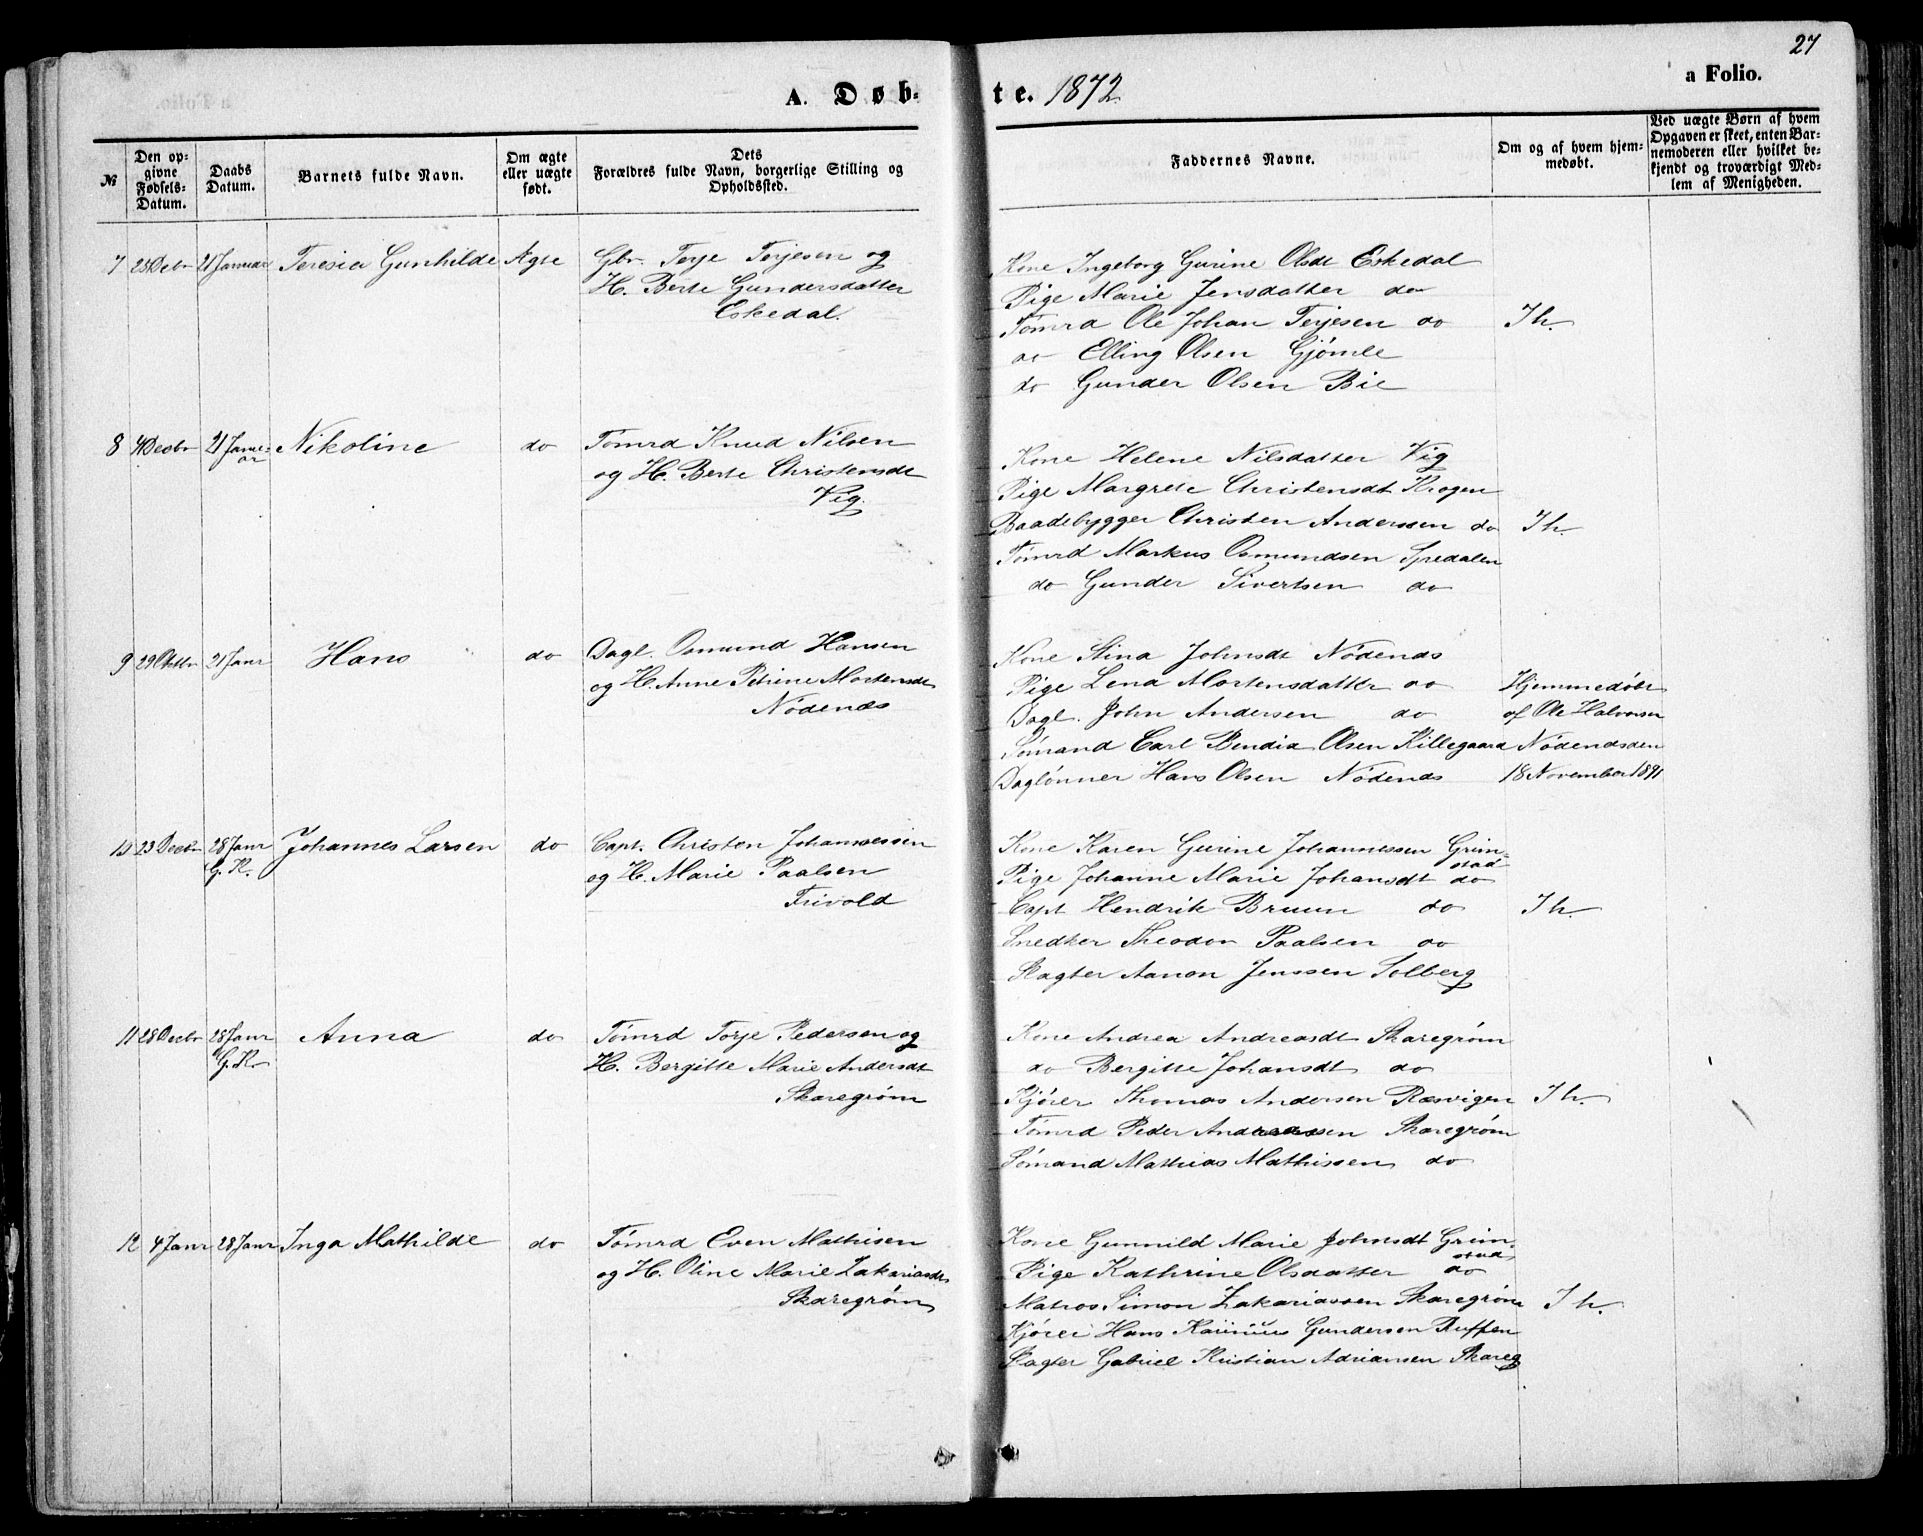 27
A. Døb-
te. 1872
a Folio.
№
Den op-
givne
Fødsels-
Datum.
Daabs
Datum.
Barnets fulde Navn.
Om ægte
eller uægte
født.
Dets
Forældres fulde Navn, borgerlige Stilling og
Opholdssted.
Faddernes Navne.
Om og af hvem hjem-
medøbt.
Ved uægte Børn af hvem
Opgaven er skeet, enten Bar-
nemoderen eller hvilket be-
kjendt og troværdigt Med-
lem af Menigheden.
7 25 Decbr 21 Januar Teresia Gunhilde Ægte Gbr. Terje Terjesen og
H. Berte Gundersdatter
Eskedal.
Kone Ingeborg Gurine Olsdt Eskedal
Pige Marie Jensdatter do
Tømrd Ole Johan Terjesen do Ih.
do Elling Olsen Gjømle
do Gunder Olsen Bie
8 4 Decbr 21 Janu-
ar
Nikoline do Tømrd Knud Nilsen
og H. Berte Christensdt
Vig.
Kone Helene Nilsdatter Vig
Pige Margrete Christensdt Krogen
Baadebygger Christen Anderssen do Ih.
Tømrd Markus Osmundsen Spredalen
do Gunder Sivertsen do
9 29 Oktbr 21 Janr Hans do Dagl. Osmund Hansen
og H. Anne Petrine Mortensdt
Nødenæs
Kone Stina Johnsdt Nødenæs
Pige Lena Mortensdatter do Hjemmedøbt
Dagl. John Andersen do af Ole Halvorsen
Sømand Carl Bendix Olsen Killegaard Nødenæs den
Daglønner Hans Olsen Nødenæs 18 November 1871
10 23 Decbr 28 Janr
G. K.
Johannes Larsen do Capt. Christen Johannessen
og H. Marie Paalsen
Frivold
Kone Karen Gurine Johannessen Grim-
stad
Pige Johanne Marie Johansdt do
Capt Hendrik Bruun do Ih.
Snedker Theodor Paalsen do
Slagter Aanon Jenssen Solberg
11 28 Decbr 28 Janr
G. K.
Anna do Tømrd Terje Pedersen og
H. Bergitte Marie Andersdt
Skaregrøm
Kone Andrea Andreasdt Skaregrøm
do Bergitte Johansdt do
Kjører Thomas Andersen Ræsvigen Ih.
Tømrd Peder Andreassen Skaregrøm
Sømand Mathias Mathissen do
12 4 Janr 28 Janr Inga Mathilde do Tømrd Even Mathisen
og H. Oline Marie Zakariasdt
Skaregrøm
Kone Gunnild Marie Johnsdt Grim-
stad
Pige Kathrine Olsdatter do
Matros Simon Zakariassen Skaregrøm Ih.
Kjører Hans Gundersen
Slagter Gabriel Kristian Adriansen Skareg